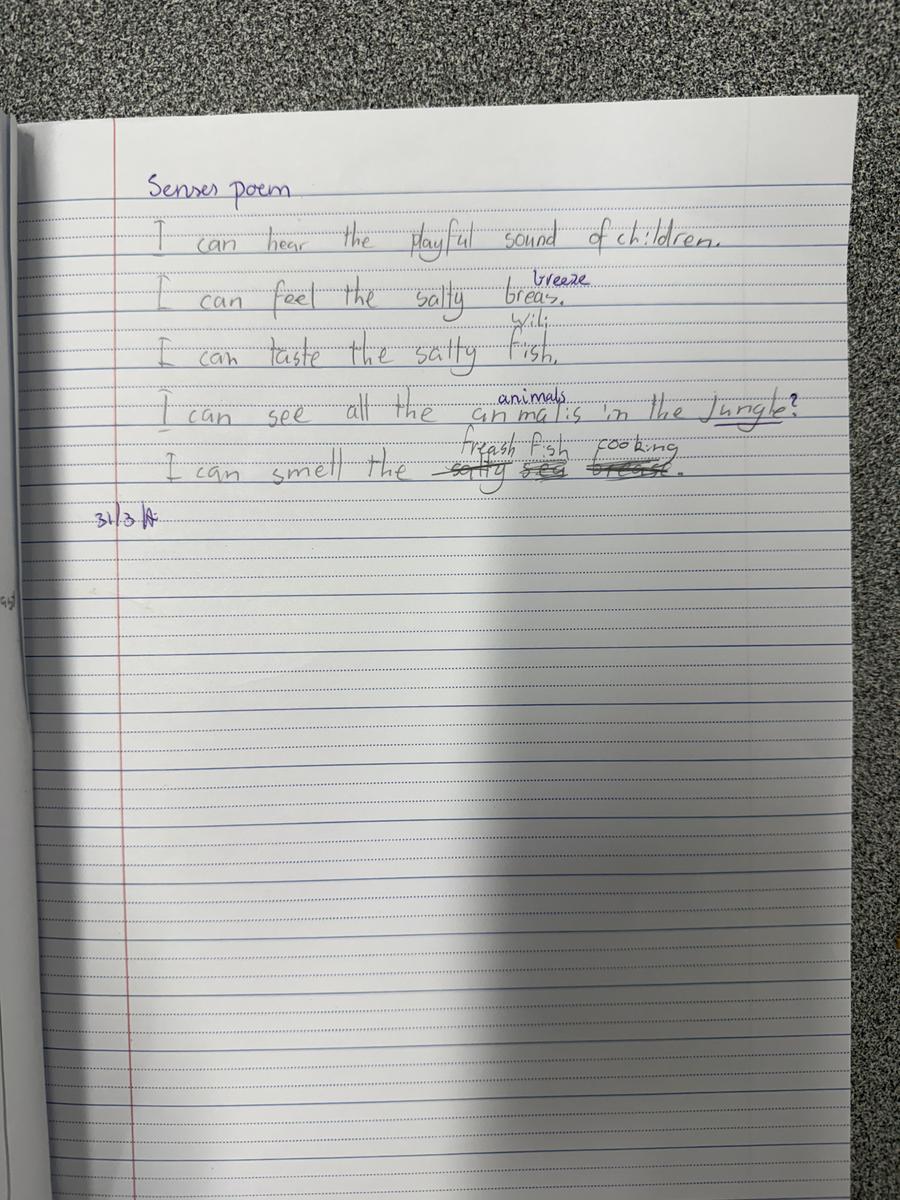 Senses poem
I can hear the playful sound of children.
breeze
I can feel the salty breas.
I can taste the salty fish.
animals
I can see all the an malis in the Jungle?
freash fish cooking
I can smell the salty sea breast.
31/3